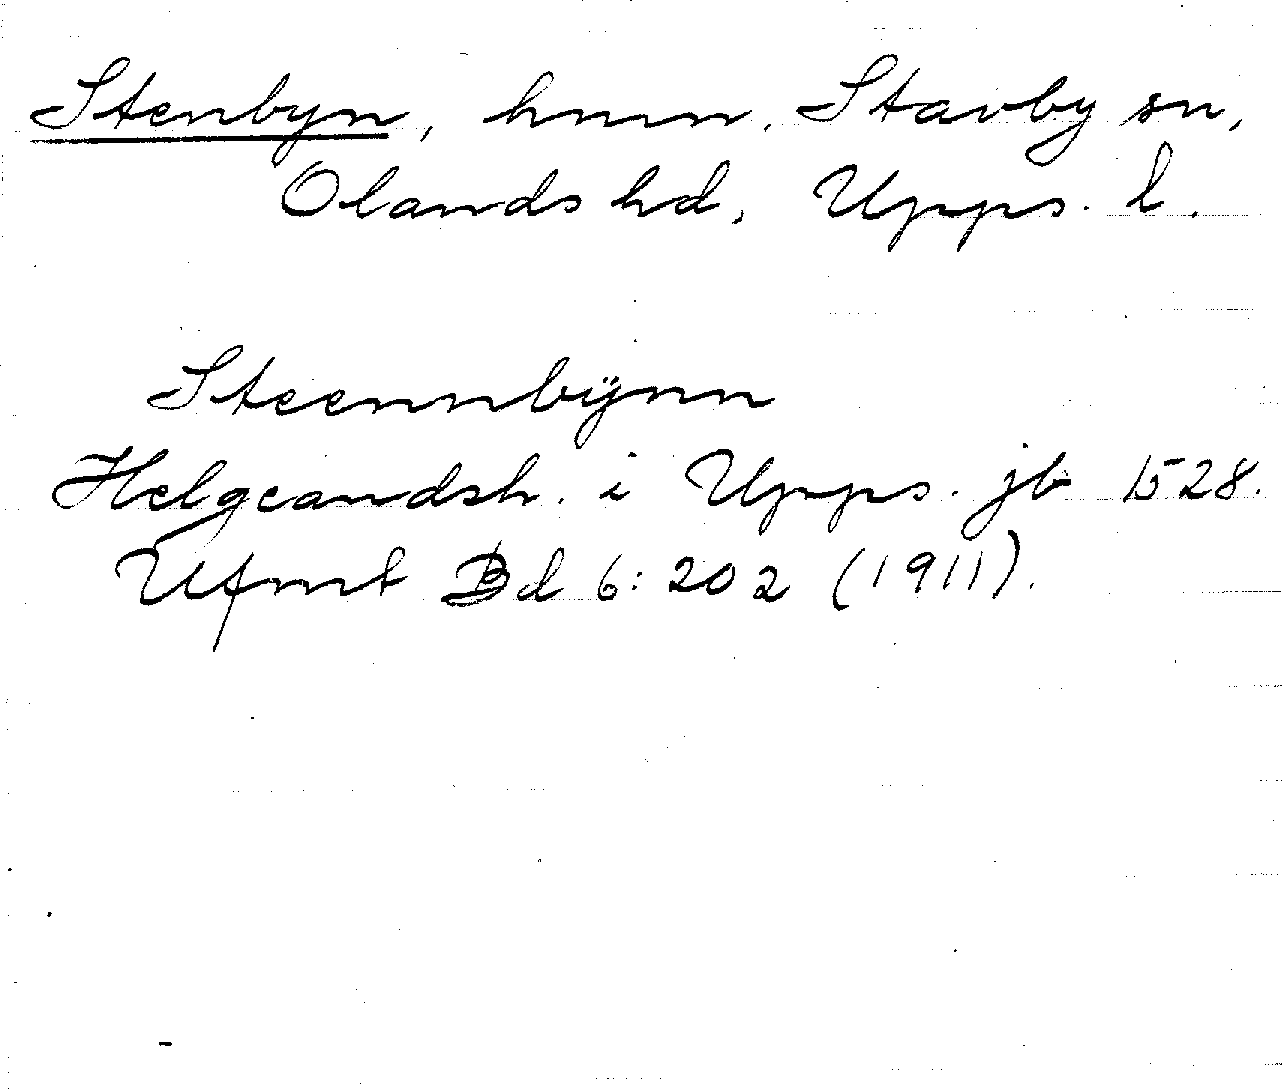 Stenbyn, hmn, Stavby sn,
Olands hd, Upps. l.
Steennbÿnn
Helgeandsh. i Upps. jb 1528.
Ufmt Bd 6:202 (1911).